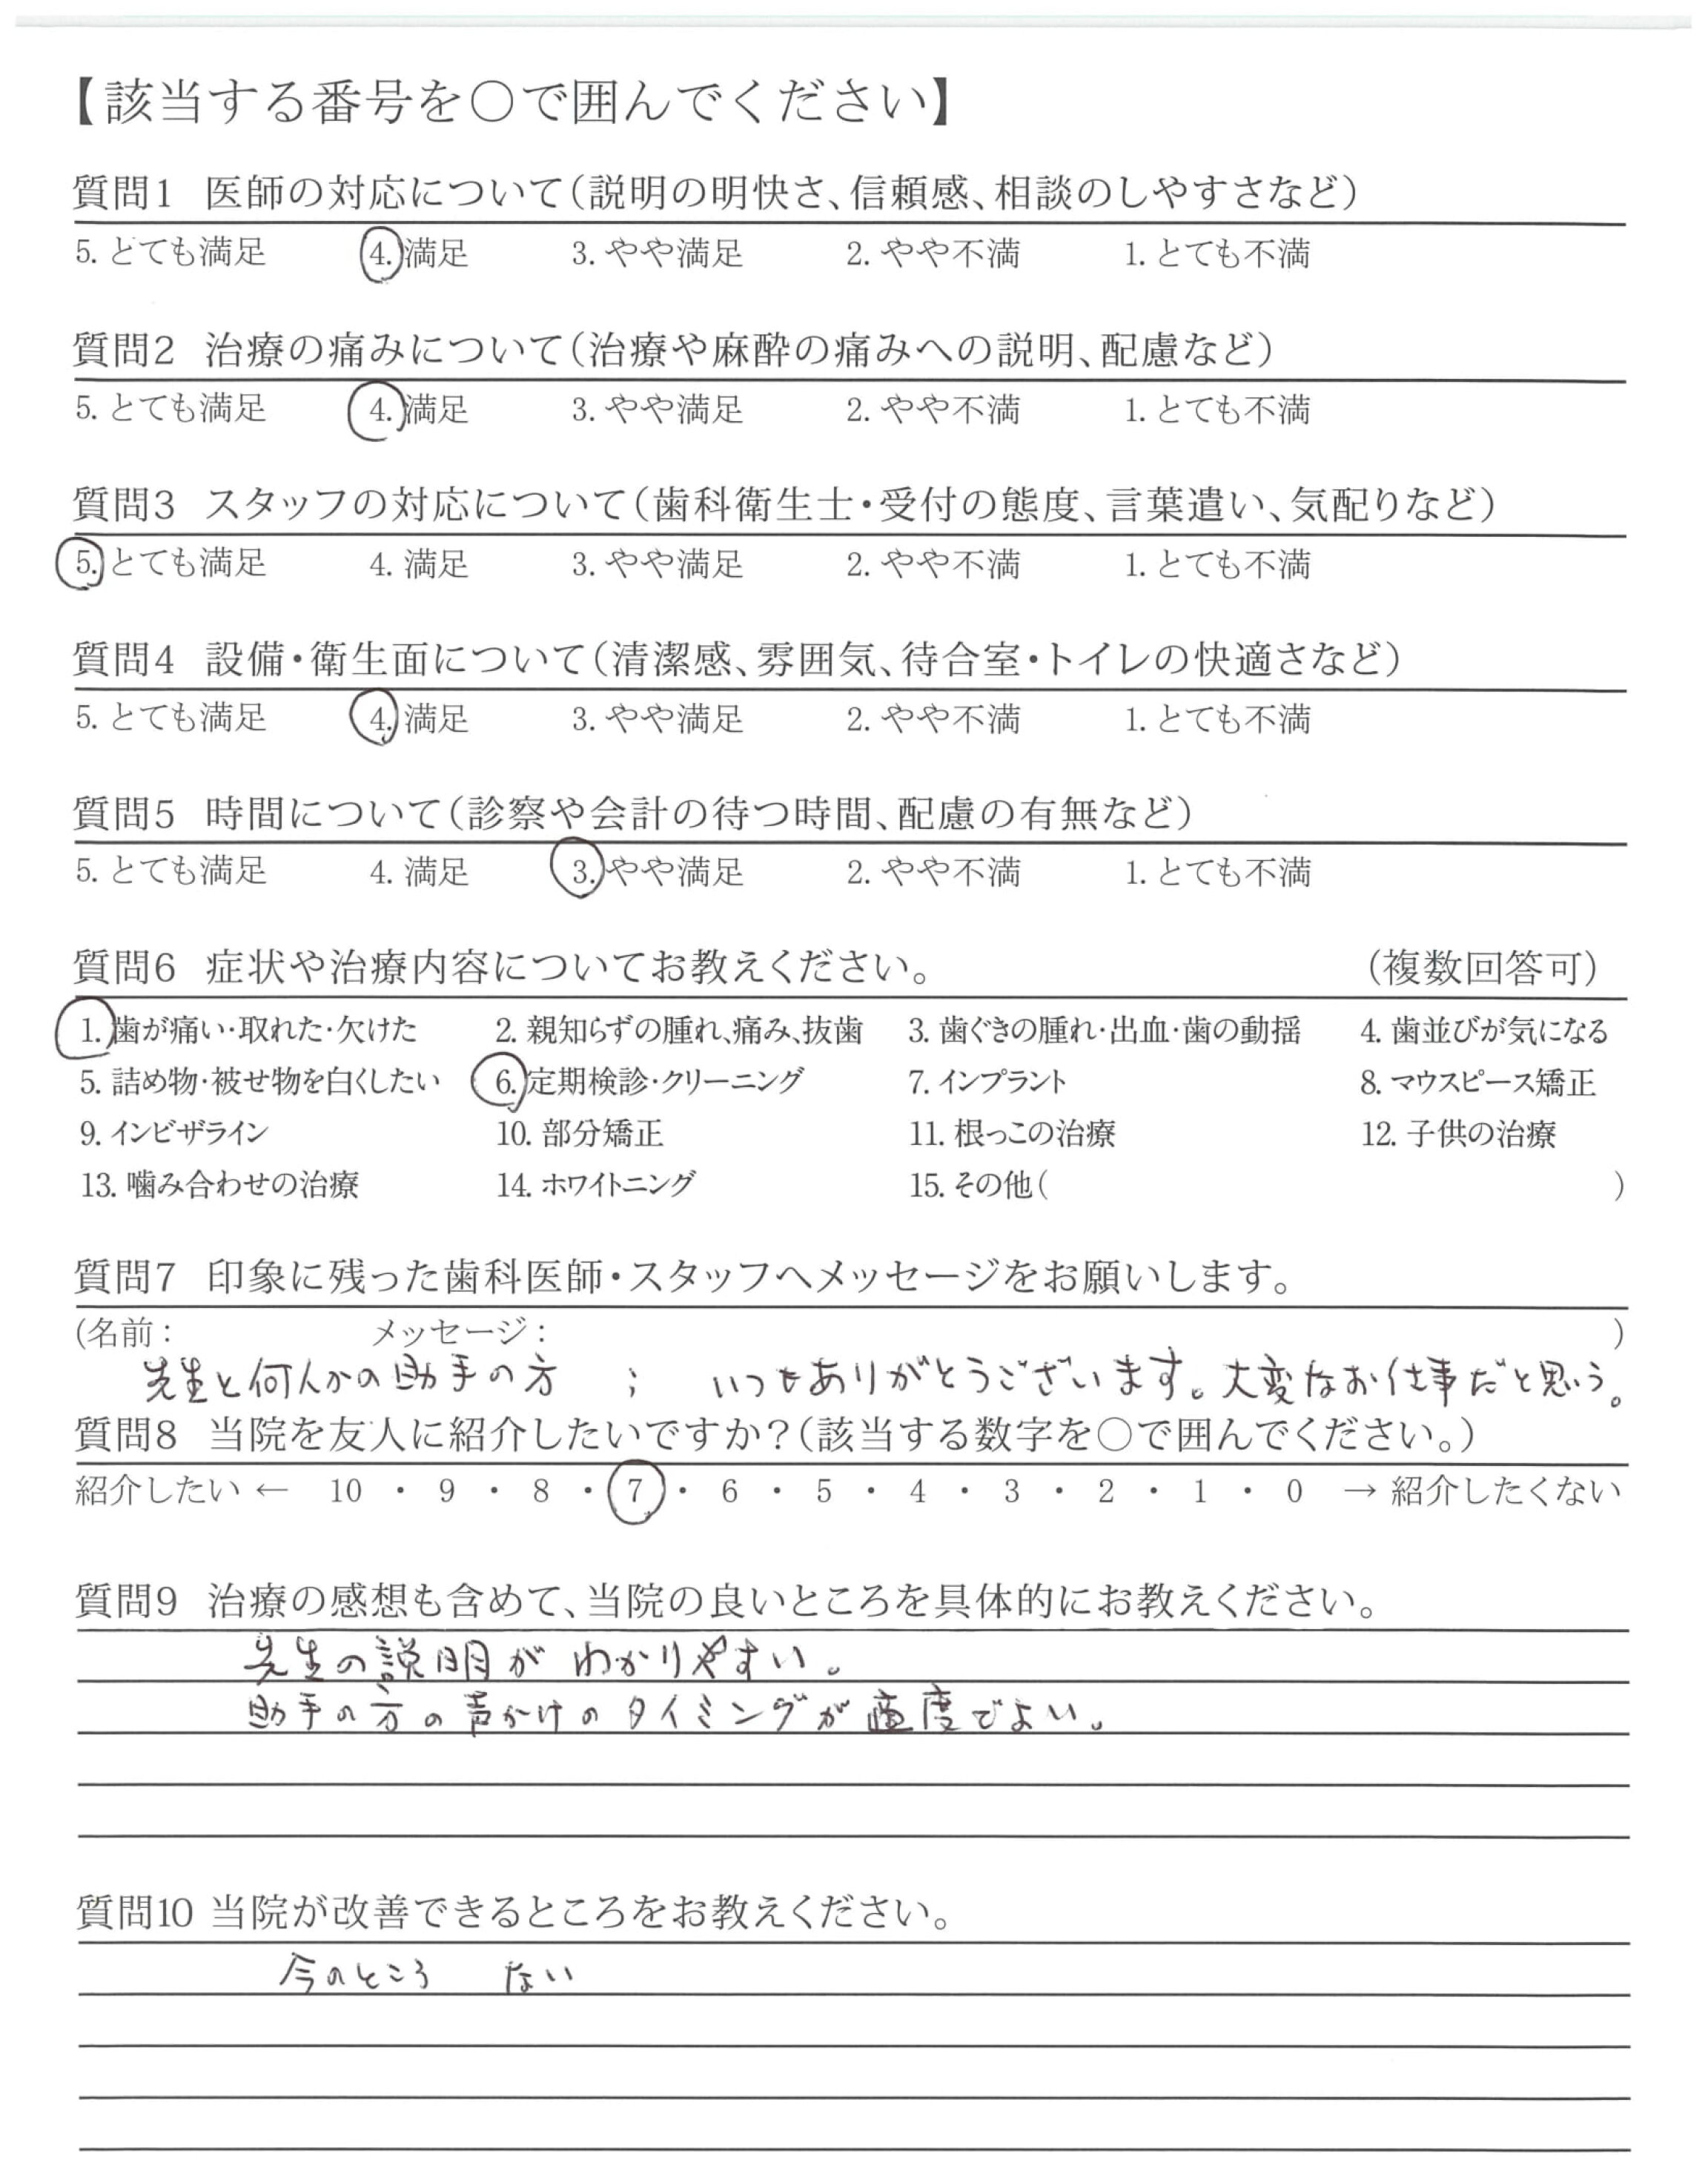 【該当する番号を○で囲んでください】
質問1 医師の対応について(説明の明快さ、信頼感、相談のしやすさなど)
5. とても満足 4. 満足 3. やや満足 2. やや不満 1. とても不満
質問2 治療の痛みについて(治療や麻酔の痛みへの説明、配慮など)
5. とても満足 4. 満足 3. やや満足 2. やや不満 1. とても不満
質問3 スタッフの対応について(歯科衛生士・受付の態度、言葉遣い、気配りなど)
5. とても満足 4. 満足 3. やや満足 2. やや不満 1. とても不満
質問4 設備・衛生面について(清潔感、雰囲気、待合室・トイレの快適さなど)
5. とても満足 4. 満足 3. やや満足 2. やや不満 1. とても不満
質問5 時間について(診察や会計の待つ時間、配慮の有無など)
5. とても満足 4. 満足 3. やや満足 2. やや不満 1. とても不満
質問6 症状や治療内容についてお教えください。 (複数回答可)
1. 歯が痛い・取れた・欠けた 2. 親知らずの腫れ、痛み、抜歯 3. 歯ぐきの腫れ・出血・歯の動揺 4. 歯並びが気になる
5. 詰め物・被せ物を白くしたい 6. 定期検診・クリーニング 7. インプラント 8. マウスピース矯正
9. インビザライン 10. 部分矯正 11. 根っこの治療 12. 子供の治療
13. 噛み合わせの治療 14. ホワイトニング 15. その他( )
質問7 印象に残った歯科医師・スタッフへメッセージをお願いします。
(名前: メッセージ: )
先生と何人かの助手の方 ; いつもありがとうございます。大変なお仕事だと思う。
質問8 当院を友人に紹介したいですか?(該当する数字を○で囲んでください。)
紹介したい ← 10 ・ 9 ・ 8 ・ 7 ・ 6 ・ 5 ・ 4 ・ 3 ・ 2 ・ 1 ・ 0 → 紹介したくない
質問9 治療の感想も含めて、当院の良いところを具体的にお教えください。
先生の説明が わかりやすい。
助手の方の声かけのタイミングが適度でよい。
質問10 当院が改善できるところをお教えください。
今のところ ない